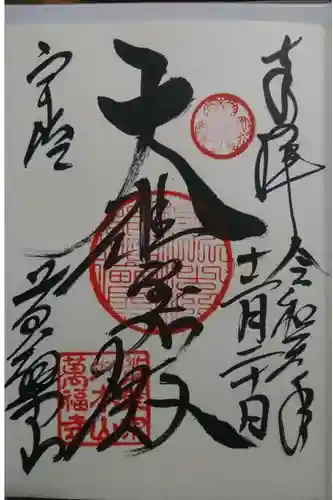 奉拝
令和元年
十一月二十日
大雄寶殿
宇治
黄檗山
萬福寺